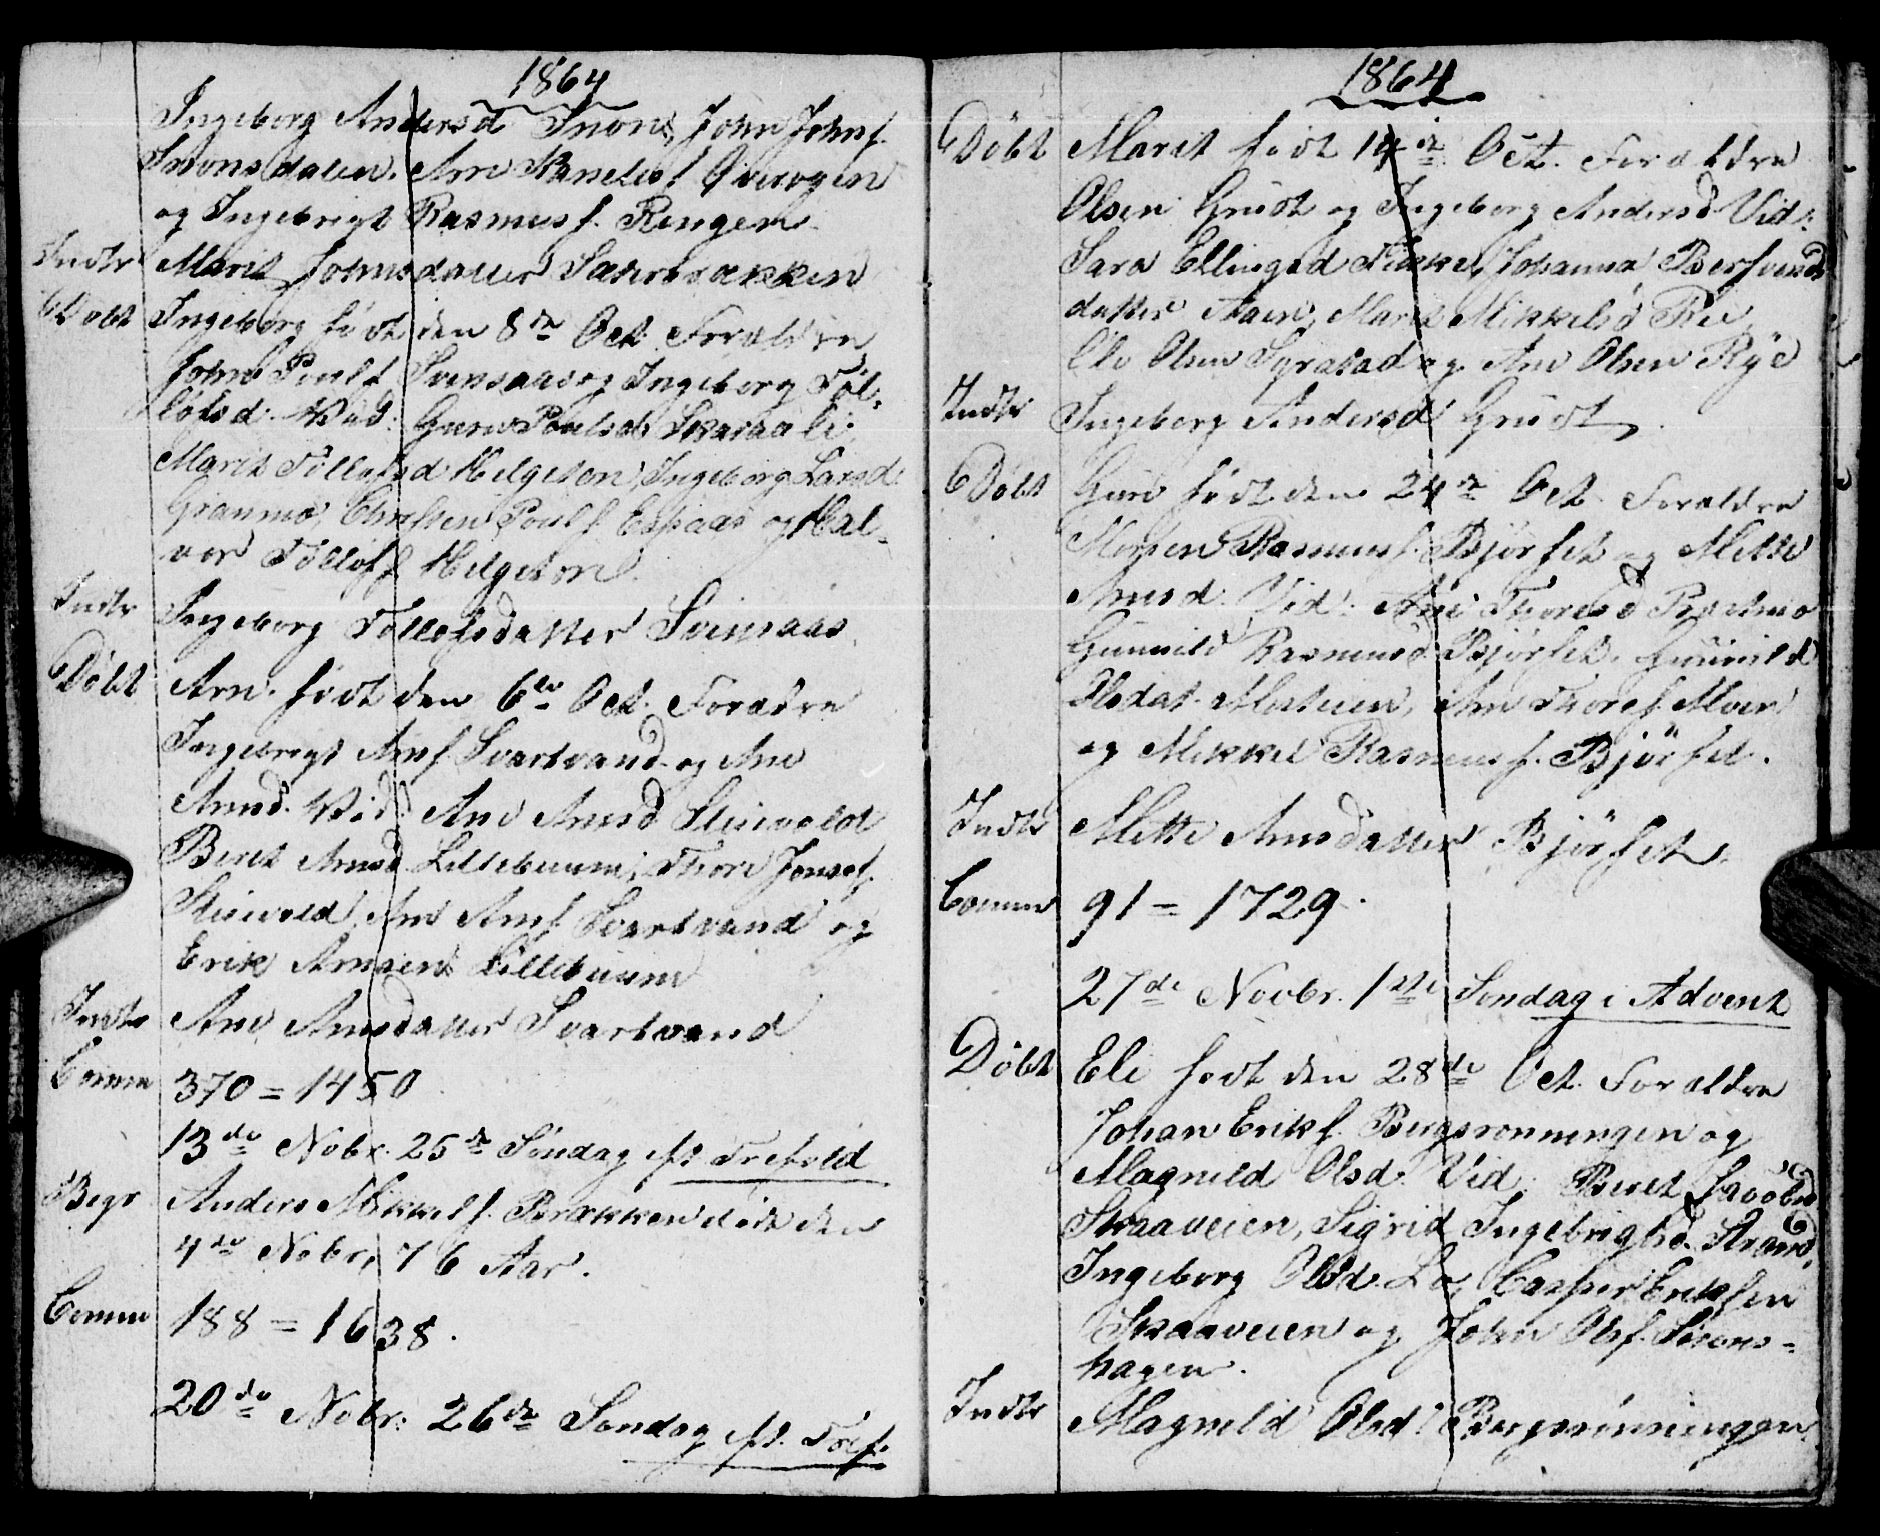 1864
Ingeborg Andersd Snone, John Johnf.
Snonsdalen. Arn Kanelesf
og Ingebrigt Rasmusf. Ringen.
Indtr Marit Johnsdatter Sæterbrækken
Døbt Ingeborg født den 8de Oct. Forældre
John Poulf. Svinsaas og Ingeborg Tøl-
løfsd. Vid: Guru Poulsd. Skaraali
Marit Tøllofsd Helgeton, Ingeborg Larsd.
Granmo, Christen Poulf. Espaas og Hal-
vor Tøllof f. Helgeton.
Indtr Ingeborg Tøllofsdatter Svinsaas
Døbt Arn. født den 6te Oct. Forældre
Ingebrigt Arnf. Svartvand og Ane
Arnsd. Vid: Ane Arnsd Stenvold
Beret Arnsd Lillebuum, Thore Jonsef.
Stenvold, Arn Arnf. Svartvand og
Erik Arnsen Lillebuum
Indtr Ane Arnsdatter Svartvand
Comm 370 = 1450.
13de Nobr. 25de Søndag eft Trefold
Begr Anders Mikkelf. Brækken død den
4de Nobr, 76 Aar.
Comm 188 = 1638.
20de Nobr. 26de Søndag eft. Tref.
1864
Døbt Marit født 14de Oct. Forældre
Olsen Grudt og Ingeborg Andersd Vid:
Sara Ellingsd Flikke, Johanna Bersvends
datter Aaen, Marit Mikkelsd Rie
Ole Olsen Syrstad og Arn Olsen Rye
Indtr Ingeborg Andersd Grudt
Døbt Guru født den 24de Oct. Forældre
Morten Rasmusf. Bjørset og Mette
Arnsd. Vid: Ane Thoresd
Gunnild Rasmusd Bjørset. Gunnild
Olsdat. Mosteien, Arn Thoref. Moen
og Mikkel Rasmusf. Bjørset.
Indtr Mette Arnsdatter Bjørset.
Comm 91 = 1729.
27de Novbr. 1ste Søndag i Advent
Døbt Eli født den 28de Oct. Forældre
Johan Erikf. Bergsrønningen og
Magnild Olsd. Vid: Beret Jacobsd
Skaaveien, Sigrid Ingebrigtsd. Strand,
Ingeborg Olsd. Lo, Casper Eriksen
Skaaveien og John Olsf. Snons-
hagen.
Indtr Magnild Olsd. Bergsrønningen.